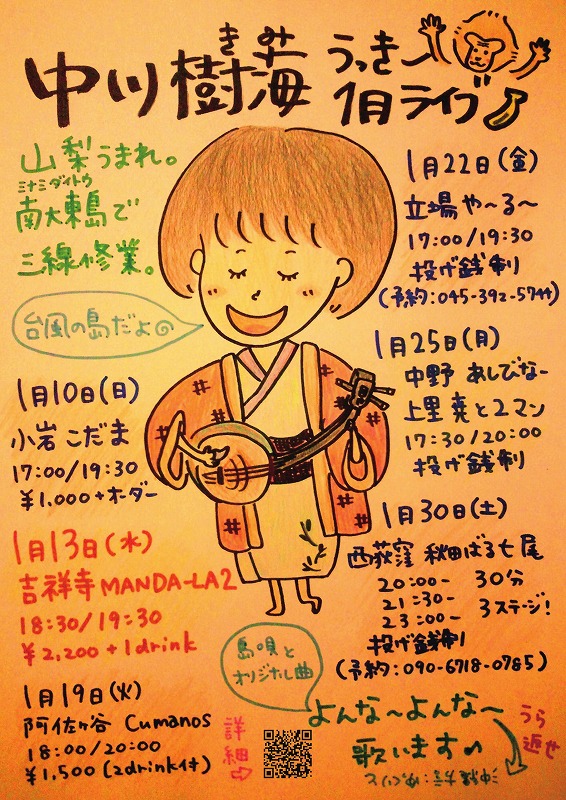 きみ
中川樹海 うっきー
1月ライブ
山梨うまれ。
ミナミダイトウ
南大東島で
三線修業。
台風の島だよ
1月10日(日)
小岩 こだま
17:00/19:30
¥1,000+オーダー
1月13日(水)
吉祥寺MANDA-LA2
18:30/19:30
¥2,200+1drink
1月19日(火)
阿佐ヶ谷 Cumanos
18:00/20:00
¥1,500(2drink付)
1月22日(金)
立場 や〜る〜
17:00/19:30
投げ銭制
(予約:045-392-5744)
1月25日(月)
中野 あしびなー
上里 尭と2マン
17:30/20:00
投げ銭制
1月30日(土)
西荻窪 秋田ばる七尾
20:00- 30分
21:30- 3ステージ!
23:00-
投げ銭制
(予約:090-6718-0785)
島唄と
オリジナル曲
よんな〜よんな〜
歌います
詳細⇨
うら
返せ